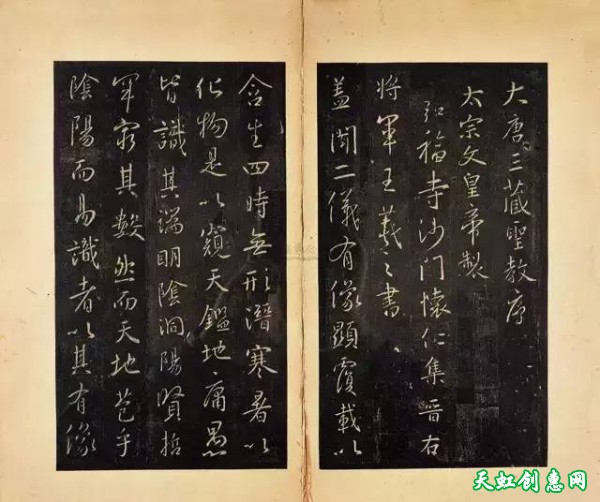 大唐三藏聖教序
太宗文皇帝製
弘福寺沙门懷仁集晉右
将軍王羲之書
盖聞二儀有像顯覆載以
含生四時無形潛寒暑以
化物是以窺天鑑地庸愚
皆識其端明陰洞陽賢哲
罕窮其數然而天地苞乎
陰陽而易識者以其有像
天虹创惠网